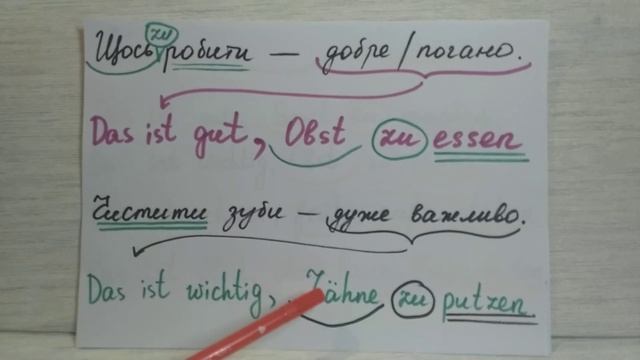 zu
Щось робити — добре / погано.
Das ist gut, Obst zu essen
Чистити зуби — дуже важливо.
Das ist wichtig, Zähne zu putzen.